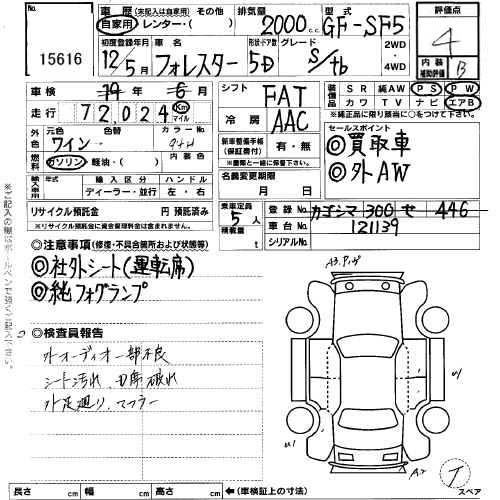 15616
車歴 (未記入は自家用) その他 自家用・レンター・( )
排気量 2000 c.c.
型式 GF-SF5
評価点 4
内装補助評価 B
初度登録年月 12/5月
車名 フォレスター
形状・ドア数 5D
グレード S/tb
2WD・4WD
車検 19年 6月
走行 72,024 Km マイル
シフト FAT
冷房 AAC
装備品 SR 純AW PS PW
カワ TV ナビ エアB
※純正品に限り該当に○をつけて下さい。
外色 元色 ワイン 色替 カラーNo.
燃料 ガソリン・軽油・( ) 内装色
新車整備手帳(保証書付) 有・無
※箇所と一緒に保管下さい。
セールスポイント
◎買取車
◎外AW
輸入車用 年式 輸入区分 ディーラー・並行 ハンドル 左・右
名義変更期限 月 日
リサイクル預託金 円 預託済み
※リサイクル預託金に資金管理料金は含まれません。
乗車定員 5人
積載量 t
登録No. カゴシマ 300 せ 446
車台No. 121139
シリアルNo.
◎注意事項 (修復・不具合箇所および状態等)
◎社外シート(運転席)
◎純フォグランプ
◎検査員報告
外オーディオ一部不良
シート汚れ
外足廻り、マフラー
※ご記入の際はボールペンで強くご記入下さい。
A2
T
スペア
長さ cm 幅 cm 高さ cm ←(車検証上の寸法)